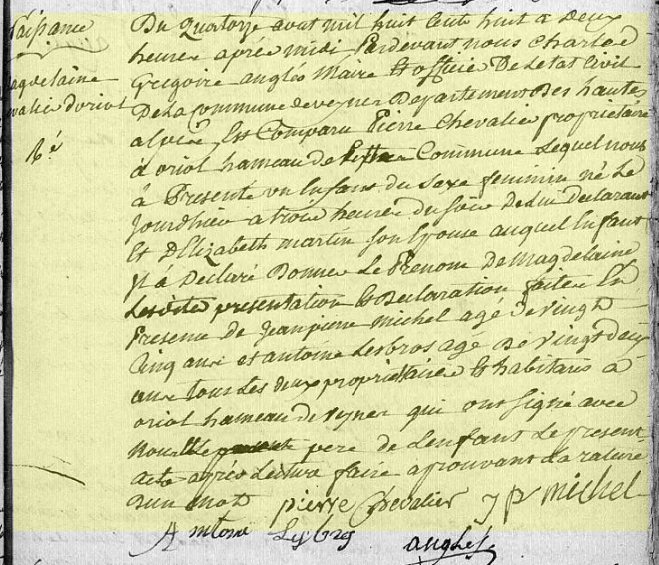 Naissance
Magdelaine
Chevalier d'oriol
Du Quatorze aout mil huit Cent huit a deux
heures apres midi Pardevant nous Charles
Gregoire anglés Maire Et officier De Letat Civil
De La Commune de veynes Departement Des hautes
alpes Est Comparu Pierre Chevalier propriétaire
à oriol hameau de Commune Lequel nous
à Presenté un Enfant du Sexe feminin né Le
Jourdhier a trois heures du Soir De Lui Declarant
Et D'Elizabeth martin Son Epouse auquel Enfant
il à Declaré Donner Le Prenom De Magdelaine
Lesdites presentation Et Declaration faites En
Presence de Jean pierre Michel agé De vingt
Cinq ans et antoine Lesbros agé De vingt Deux
ans Tous Les deux propriétaires Et habitans à
oriol hameau de veynes qui ont Signé avec
Nous Le pere de Lenfant Le present
acte aprés Lecture faite aprouvant La rature
dun mot pierre Chevalier J p Michel
Antoine Lesbros
anglés